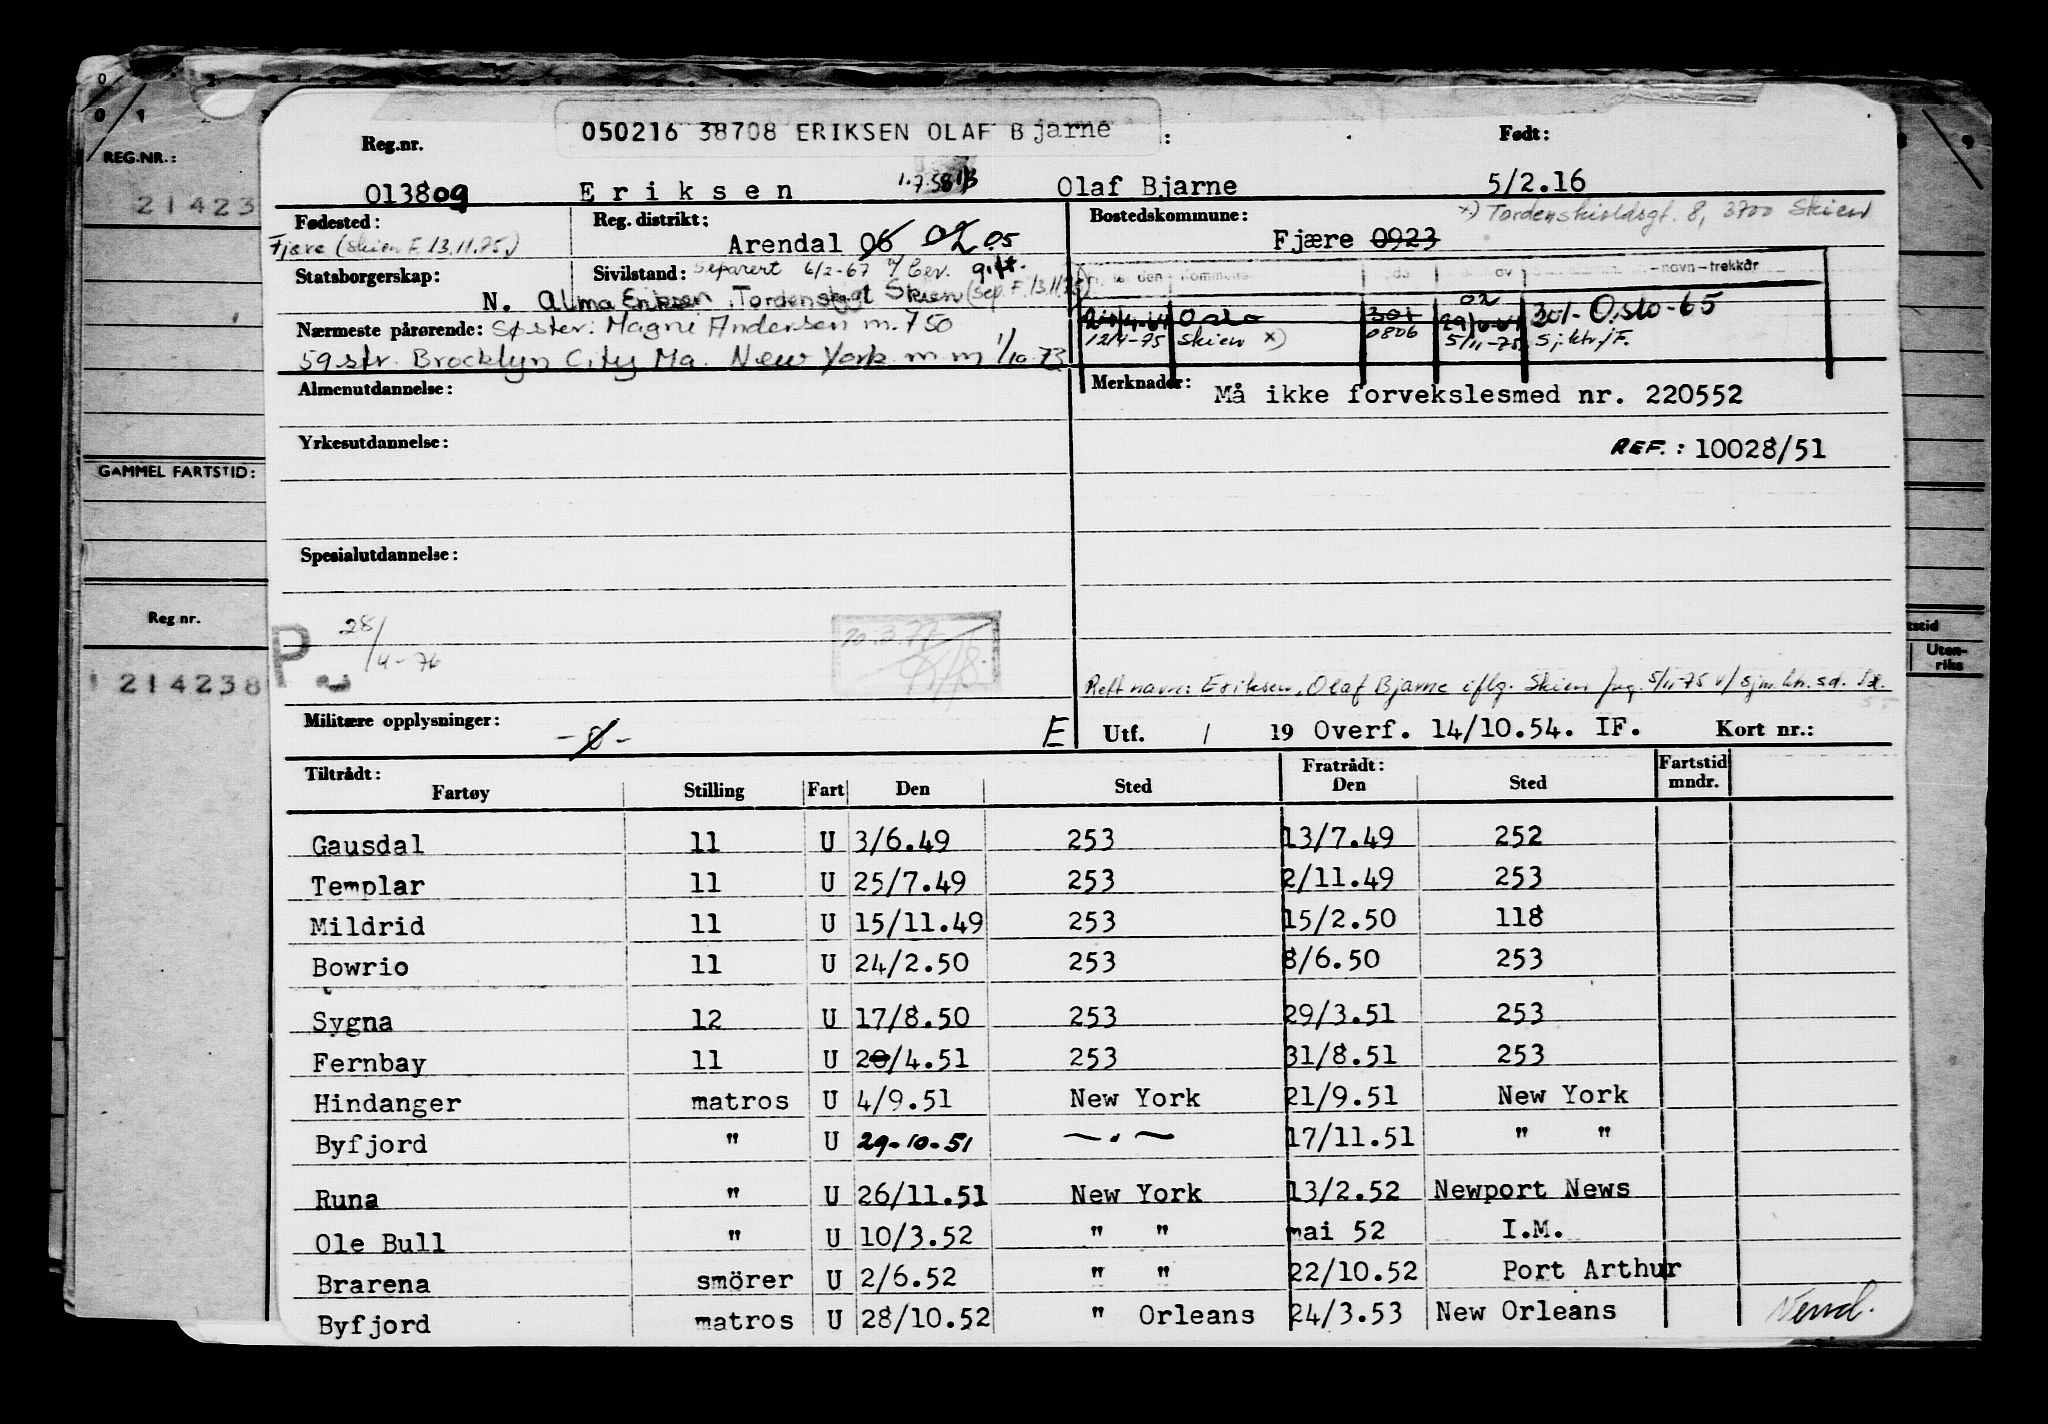 REG.NR.:
21423
GAMMEL FARTSTID:
Reg nr.
1214238
Uten-
riks
050216 38708 ERIKSEN OLAF Bjarne
Reg.nr. Født:
013809 Eriksen 1.7.58 Olaf Bjarne 5/2.16
Fødested: Reg. distrikt: Bostedskommune: x) Tordenskioldsgt. 8, 3700 Skien
Fjære (Skien F. 13.11.75) Arendal 06 02 05 Fjære 0923
Statsborgerskap: Sivilstand: Separert 6/2-67 gift. den Kommune av -navn-trekkår
N. Alma Eriksen Tordenskgt Skien (sep. F. 13.11.75)
Nærmeste pårørende: Søster: Magni Andersen m. 750 Oslo 301 02 301-Oslo-65
59 str. Brocklyn City Ma. New York m m 1/10-73 12/4-75 Skien x) 0806 5/11-75 Sj.ktr/F.
Almenutdannelse: Merknader: Må ikke forvekslesmed nr. 220552
Yrkesutdannelse: REF.: 10028/51
Spesialutdannelse:
P 28/4-76 20.3.77
Rett navn: Eriksen, Olaf Bjarne iflg. Skien 5/11-75 v/ sjm.
Militære opplysninger: -0- E Utf. / 19 Overf. 14/10.54. IF. Kort nr.:
Tiltrådt: Fratrådt: Fartstid
Fartøy Stilling Fart Den Sted Den Sted mndr.
Gausdal 11 U 3/6.49 253 13/7.49 252
Templar 11 U 25/7.49 253 2/11.49 253
Mildrid 11 U 15/11.49 253 15/2.50 118
Bowrio 11 U 24/2.50 253 8/6.50 253
Sygna 12 U 17/8.50 253 29/3.51 253
Fernbay 11 U 20/4.51 253 31/8.51 253
Hindanger matros U 4/9.51 New York 21/9.51 New York
Byfjord " U 29-10-51 —〃— 17/11.51 " "
Runa " U 26/11.51 New York 13/2.52 Newport News
Ole Bull " U 10/3.52 " " mai 52 I.M.
Brarena smörer U 2/6.52 " " 22/10.52 Port Arthur
Byfjord matros U 28/10.52 " Orleans 24/3.53 New Orleans
Vend.